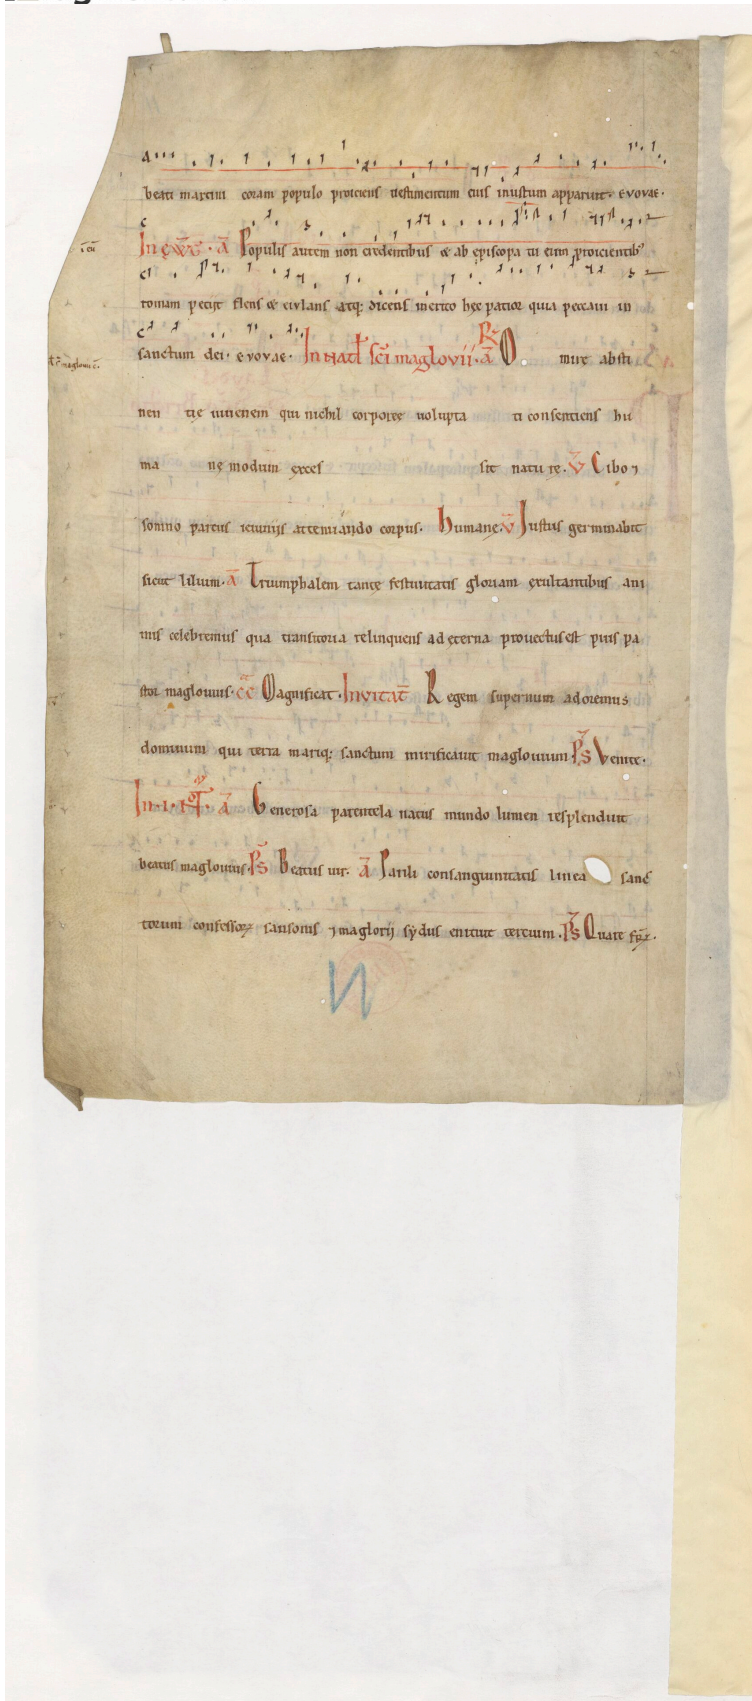 beati martini coram populo proiciens vestimentum eius inustum apparuit. evovae.
In evḡ. ā Populis autem non credentibus & ab episcopa tu eum proicientib᷒
tomam peciit flens & eiulans atq: dicens merito hęc patior quia peccaui in
sanctum dei. evovae. In natł sc̄i maglovii. ā R̄ O mirę absti
nen tię iuuenem qui nichil corporeę uolupta ti consentiens hu
ma nę modum exces sit natu rę. v̄ Cibo ⁊
somno parcus ieiuniis attenuando corpus. humanę. v̄ Justus germinabit
sicut lilium. ā Triumphalem tantę festiuitatis gloriam exultantibus ani
mis celebremus qua transitoria relinquens ad ęterna prouectus est pius pa
stor maglouius. Magnificat. Invitat̄ Regem supernum adoremus
dominum qui terra mariq: sanctum mirificauit maglouium. P̄s Venite.
In . i . not̄. ā Generosa parentela natus mundo lumen resplenduit
beatus maglouius. P̄s Beatus uir. ā Parili consanguinitatis linea sanc
torum confessoꝝ sansonis ⁊ maglorii sydus enituit tercium. P̄s Quare fr̄.